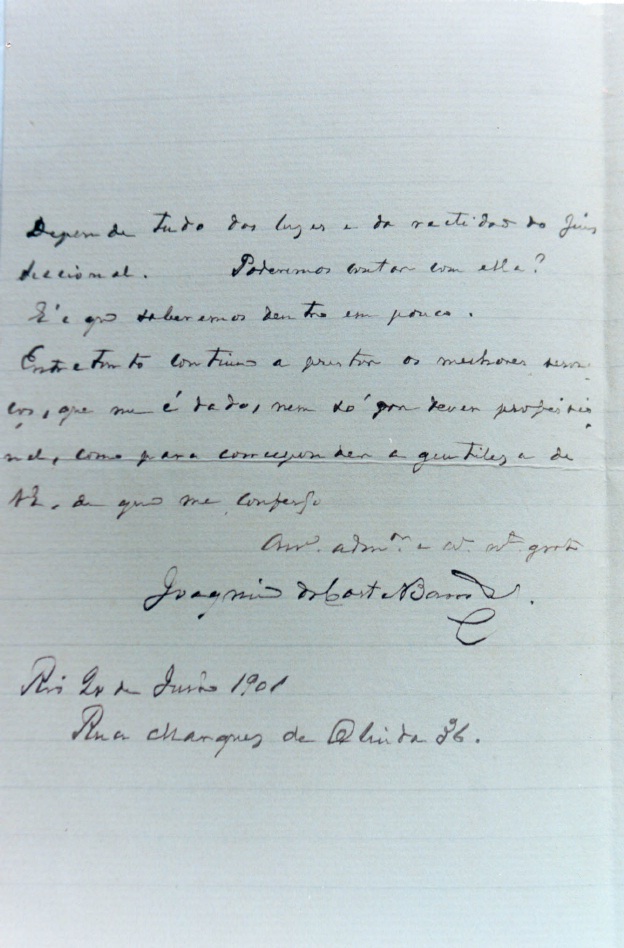 Depende tudo das luzes e da rectidão do Juis
seccional. Poderemos contar com ella?
É o que saberemos dentro em pouco.
Entretanto continuo a prestar os melhores servi-
ços, que me é dado, nem só por dever profissio
nal, como para corresponder a gentileza de
VE. de quem me confesso
Amº. admºr. e cº. mtº grato
Joaquim da Costa Barradas.
Rio 20 de Junho 1901
Rua Marques de Olinda 36.